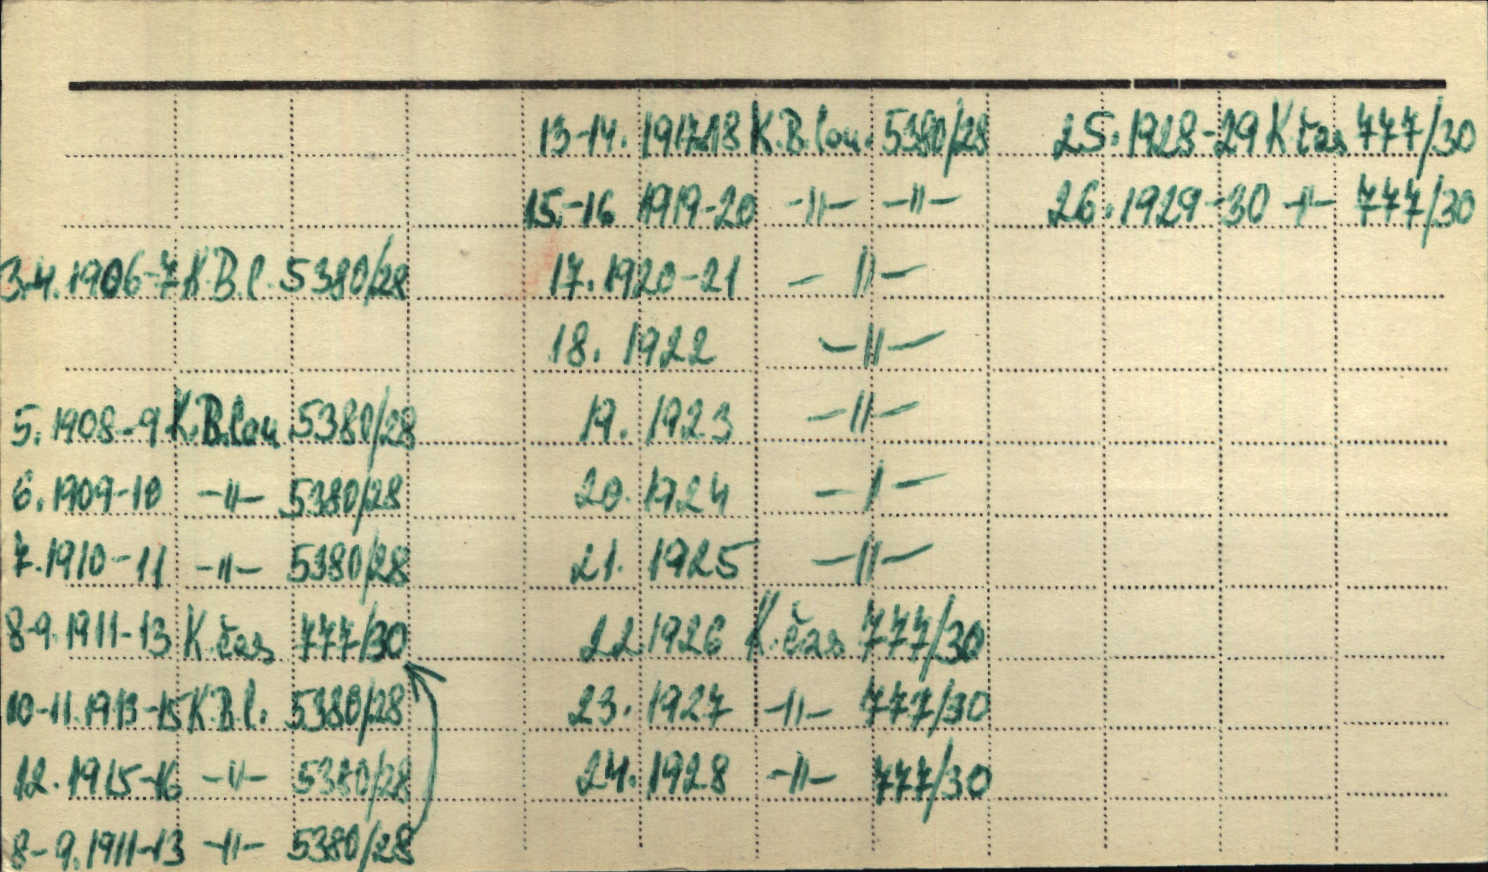 3.4. 1906-7 K.B.l. 5380/28
5. 1908-9 K.B.lou 5380/28
6. 1909-10 -"- 5380/28
7. 1910-11 -"- 5380/28
8-9. 1911-13 K čas 777/30
10-11. 1913-15 K.B.l. 5380/28
12. 1915-16 -"- 5380/28
8-9. 1911-13 -"- 5380/28
13-14. 1917-18 K.B.lou. 5380/28
15.-16 1919-20 -"- -"-
17. 1920-21 -"-
18. 1922 -"-
19. 1923 -"-
20. 1924 -"-
21. 1925 -"-
22 1926 K. čas 777/30
23. 1927 -"- 777/30
24. 1928 -"- 777/30
25. 1928-29 K čas 777/30
26. 1929-30 -"- 777/30